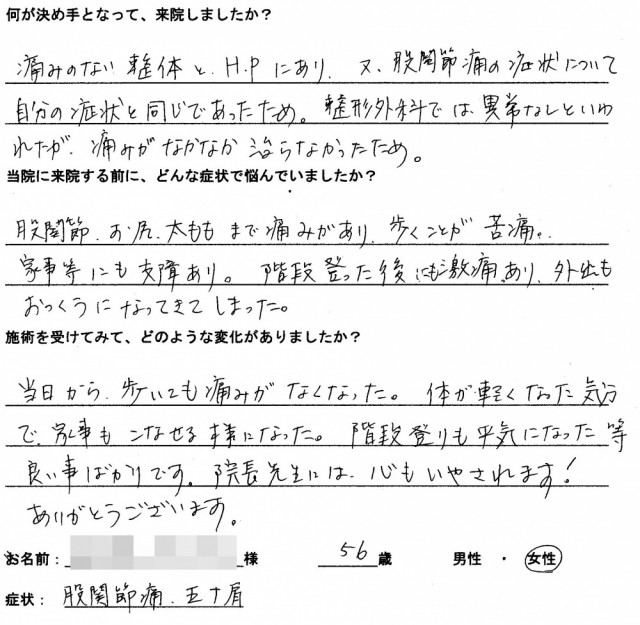 何が決め手となって、来院しましたか？
痛みのない整体と、H.Pにあり、又、股関節痛の症状について
自分の症状と同じであったため。整形外科では異常なしといわ
れたが、痛みがなかなか治らなかったため。
当院に来院する前に、どんな症状で悩んでいましたか？
股関節、お尻、太ももまで痛みがあり、歩くことが苦痛。
家事等にも支障あり。階段登った後にも激痛あり、外出も
おっくうになってきてしまった。
施術を受けてみて、どのような変化がありましたか？
当日から、歩いても痛みがなくなった。体が軽くなった気分
で、家事もこなせる様になった。階段登りも平気になった等
良い事ばかりです。院長先生には、心もいやされます！
ありがとうございます。
お名前：様 56歳 男性・女性
症状：股関節痛、五十肩